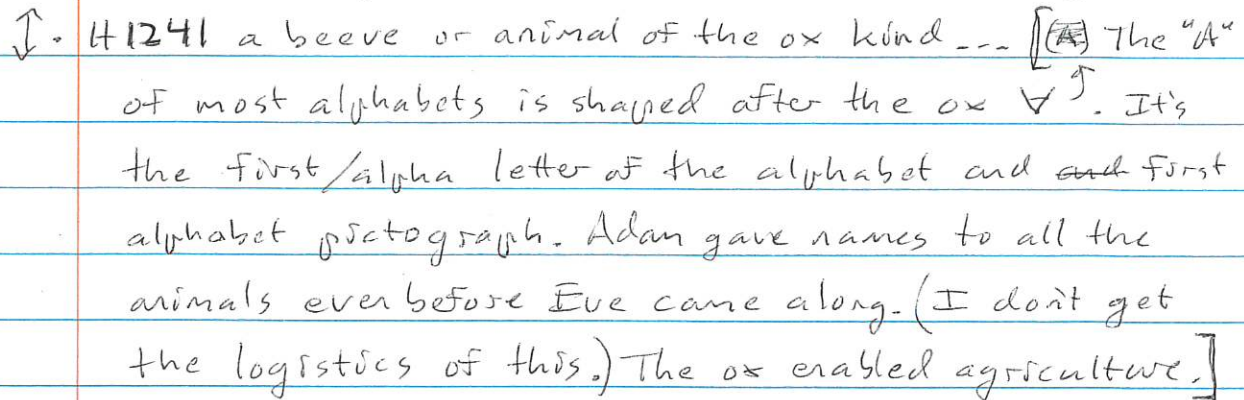 ↕. H1241 a beeve or animal of the ox kind --- [ The "A"
of most alphabets is shaped after the ox ∀. It's
the first/alpha letter of the alphabet and and first
alphabet pictograph. Adam gave names to all the
animals even before Eve came along. (I don't get
the logistics of this.) The ox enabled agriculture.]